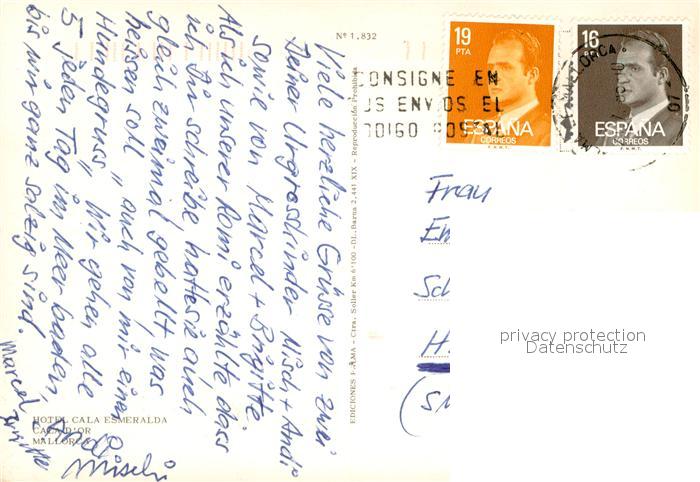 Viele herzliche Grüsse von zwei
Deiner Urgrosskinder Misch + Andi
sowie von Marcel + Brigitte
Als ich unserer Romi erzählte dass
ich Dir schreibe hat sie auch
gleich zweimal gebellt was
heissen soll „ auch von mir einen
Hundegruss „ Wir gehen alle
5 jeden Tag im Meer baden,
bis wir ganz salzig sind.
Marcel
Andi
Misch
HOTEL CALA ESMERALDA
CALA D'OR
MALLORCA
Nº 1.832
EDICIONES PALMA - Ctra. Soller Km 6'100 - DL. Barna 2.441 XIX - Reproducción Prohibida
CONSIGNE EN
US ENVIOS EL
ODIGO POSTAL
19
PTA
ESPAÑA
CORREOS
F.N.M.T.
16
PTA
ESPAÑA
CORREOS
F.N.M.T.
MALLORCA
Frau
Em
Sch
H.
privacy protection
Datenschutz